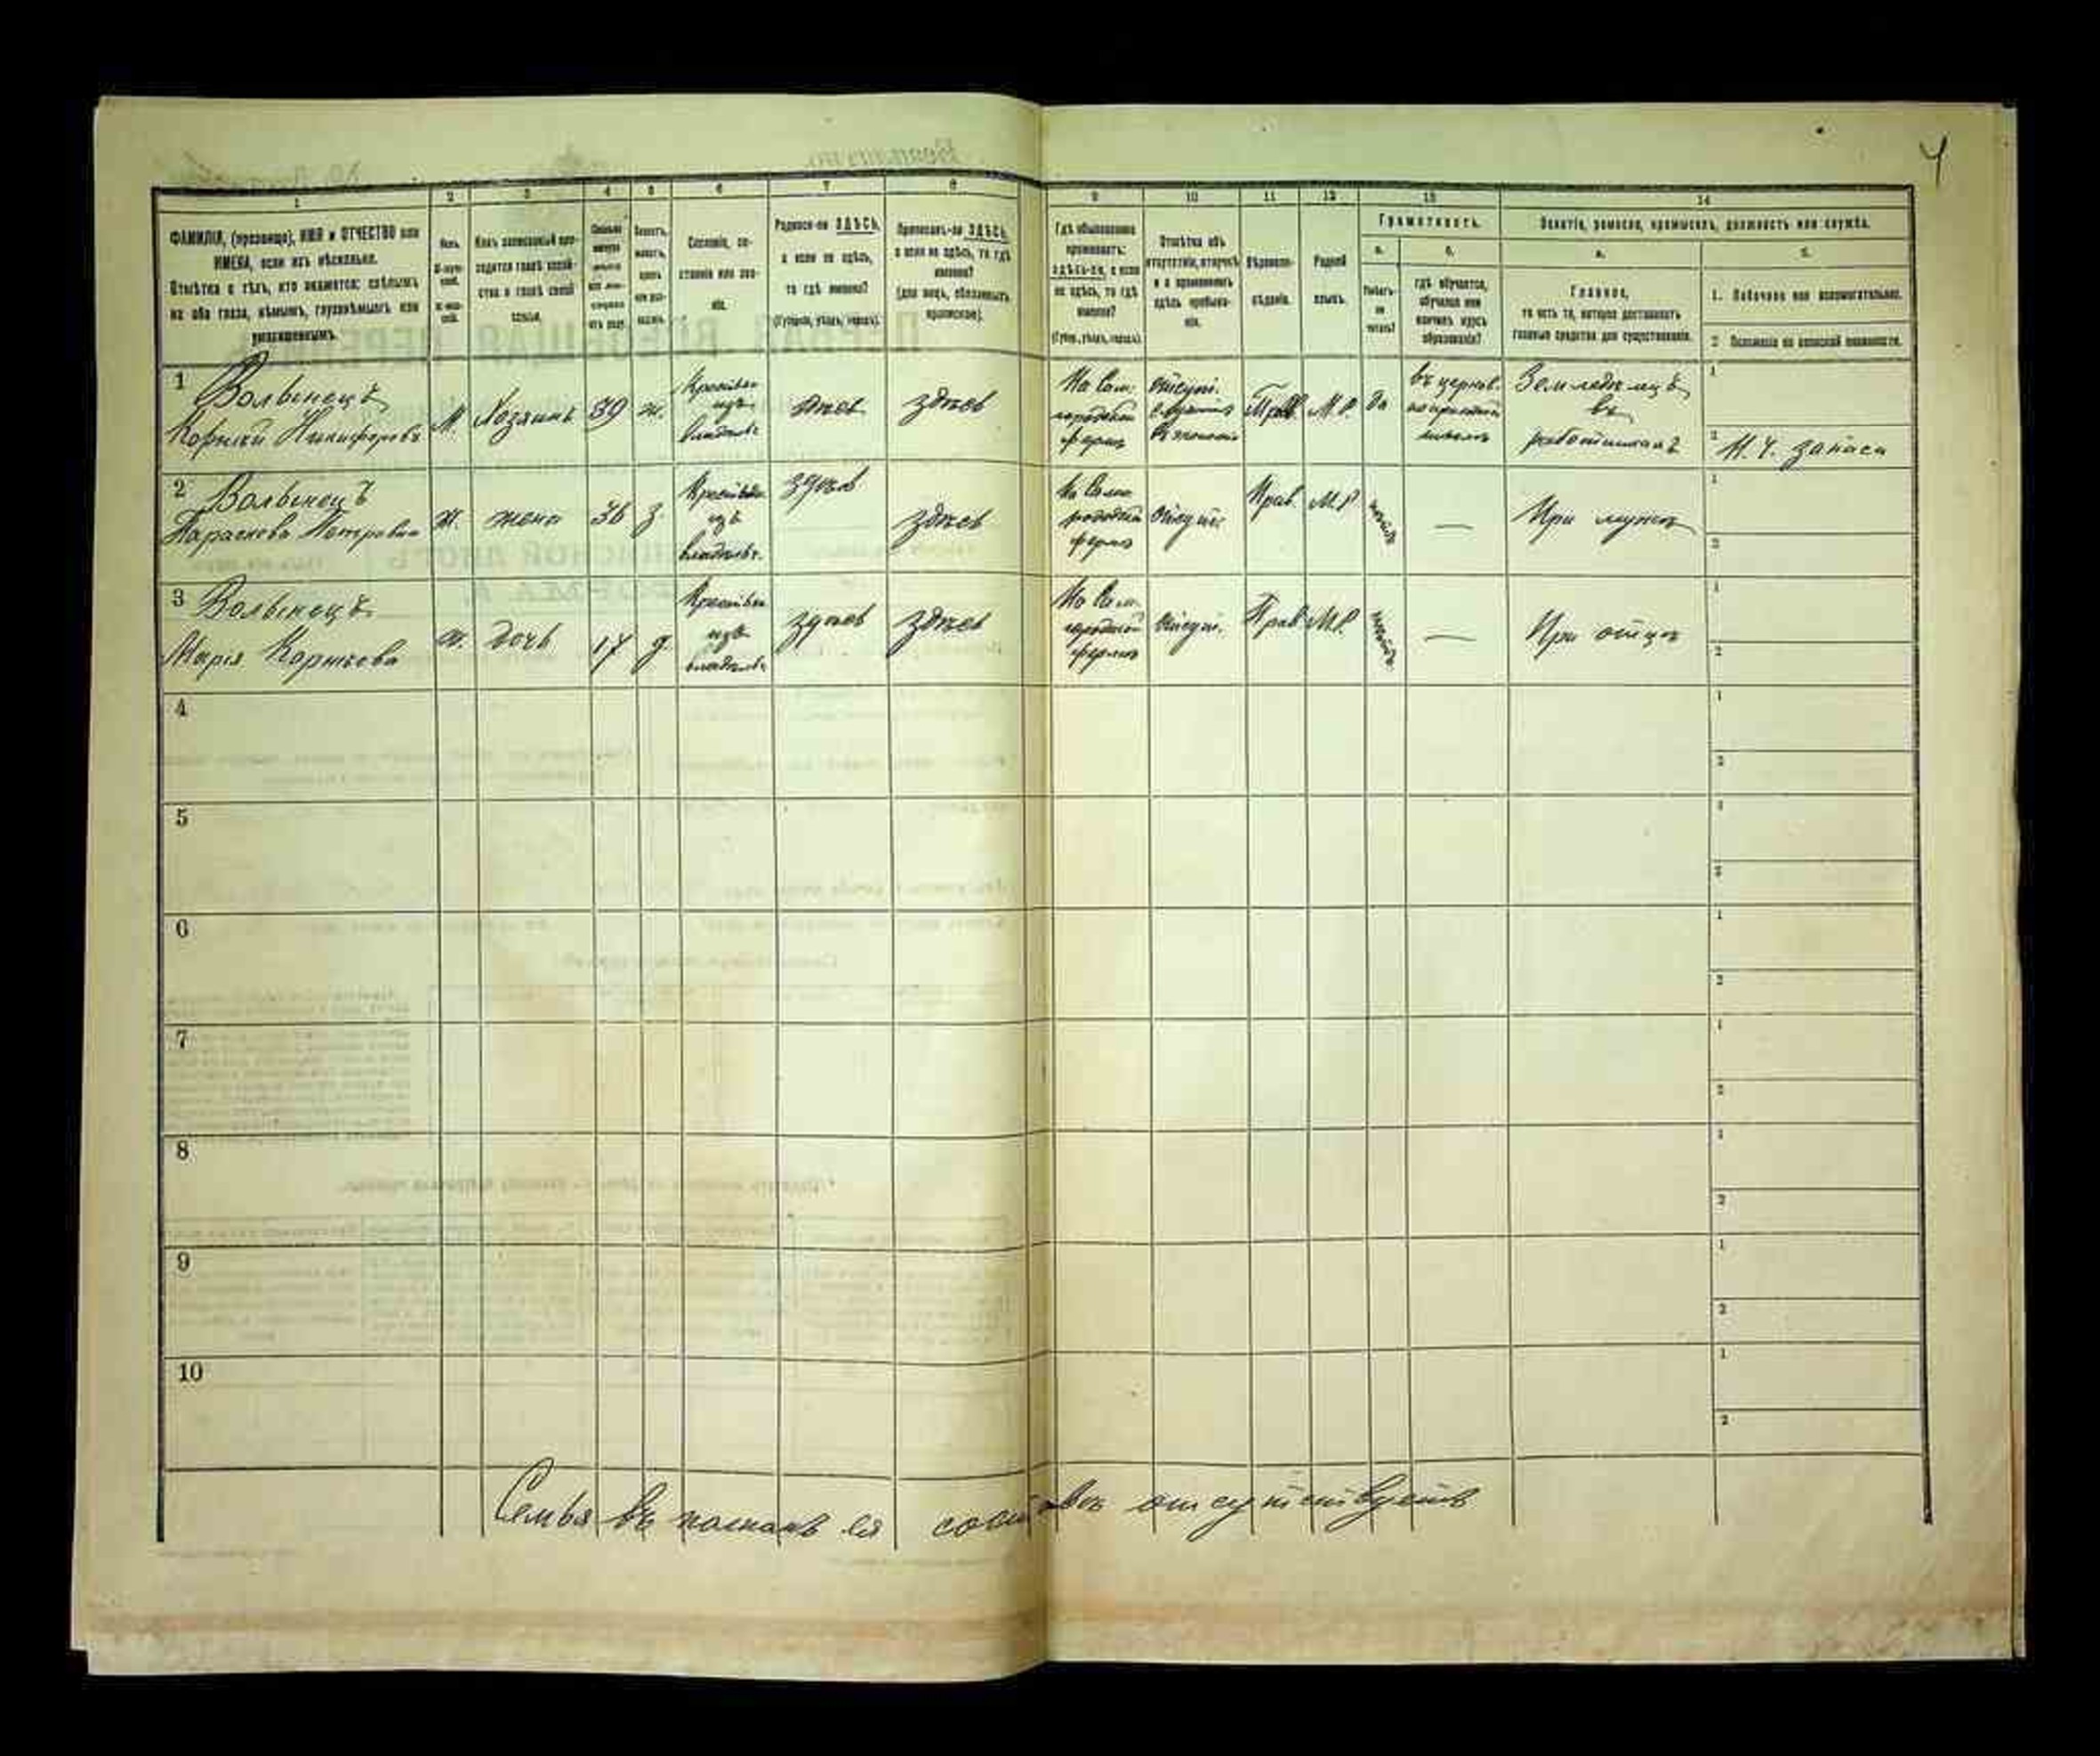 4
1 2 3 4 5 6 7 8 9 10 11 12 13 14
ФАМИЛІЯ, (прозвище), ИМЯ и ОТЧЕСТВО или
ИМЕНА, если ихъ нѣсколько.
Отмѣтка о тѣхъ, кто окажется: слѣпымъ
на оба глаза, нѣмымъ, глухонѣмымъ или
умалишеннымъ.
Полъ.
Какъ записанный при-
ходится главѣ хозяй-
ства и главѣ своей
семьи.
Сословіе, со-
стояніе или зва-
ніе.
Родился-ли ЗДѢСЬ,
а если не здѣсь,
то гдѣ именно?
(Губернія, уѣздъ, городъ).
Приписанъ-ли ЗДѢСЬ,
а если не здѣсь, то гдѣ
именно?
(для лицъ, обязанныхъ
припискою).
Гдѣ обыкновенно
проживаетъ:
здѣсь-ли, а если
не здѣсь, то гдѣ
именно?
(Губер., уѣздъ, городъ).
Отмѣтка объ
отсутствіи, отлучкѣ
и о временномъ
здѣсь пребыва-
ніи.
Вѣроиспо-
вѣданіе.
Родной
языкъ.
Грамотность.
а.
б.
Умѣетъ-
ли
читать?
гдѣ обучается,
обучался или
кончилъ курсъ
образованія?
Занятіе, ремесло, промыселъ, должность или служба.
а.
б.
Главное,
то есть то, которое доставляетъ
главныя средства для существованія.
1. Побочное или вспомогательное.
2. Положеніе по воинской повинности.
1 Волынецъ
Корнѣй Никифоровъ
М.
Хозяинъ
39
ж.
Крестьян.
изъ
владѣльч.
здѣсь
здѣсь
фермѣ
отсут.
Прав.
М.Р.
да
въ церков.
Земледѣлецъ
въ
работникахъ
1
2 Н.Ч. запаса
2 Волынецъ
Параскева Петровна
ж.
жена
36
з.
Крестьян.
изъ
владѣльч.
здѣсь
здѣсь
фермѣ
отсут.
Прав.
М.Р.
—
При мужѣ
1
2
3 Волынецъ
Марія Корнѣева
ж.
дочь
17
д.
Крестьян.
изъ
владѣльч.
здѣсь
здѣсь
фермѣ
отсут.
Прав.
М.Р.
—
При отцѣ
1
2
4
1
2
5
1
2
6
1
2
7
1
2
8
1
2
9
1
2
10
1
2
Семья въ полномъ ея составѣ отсутствуетъ